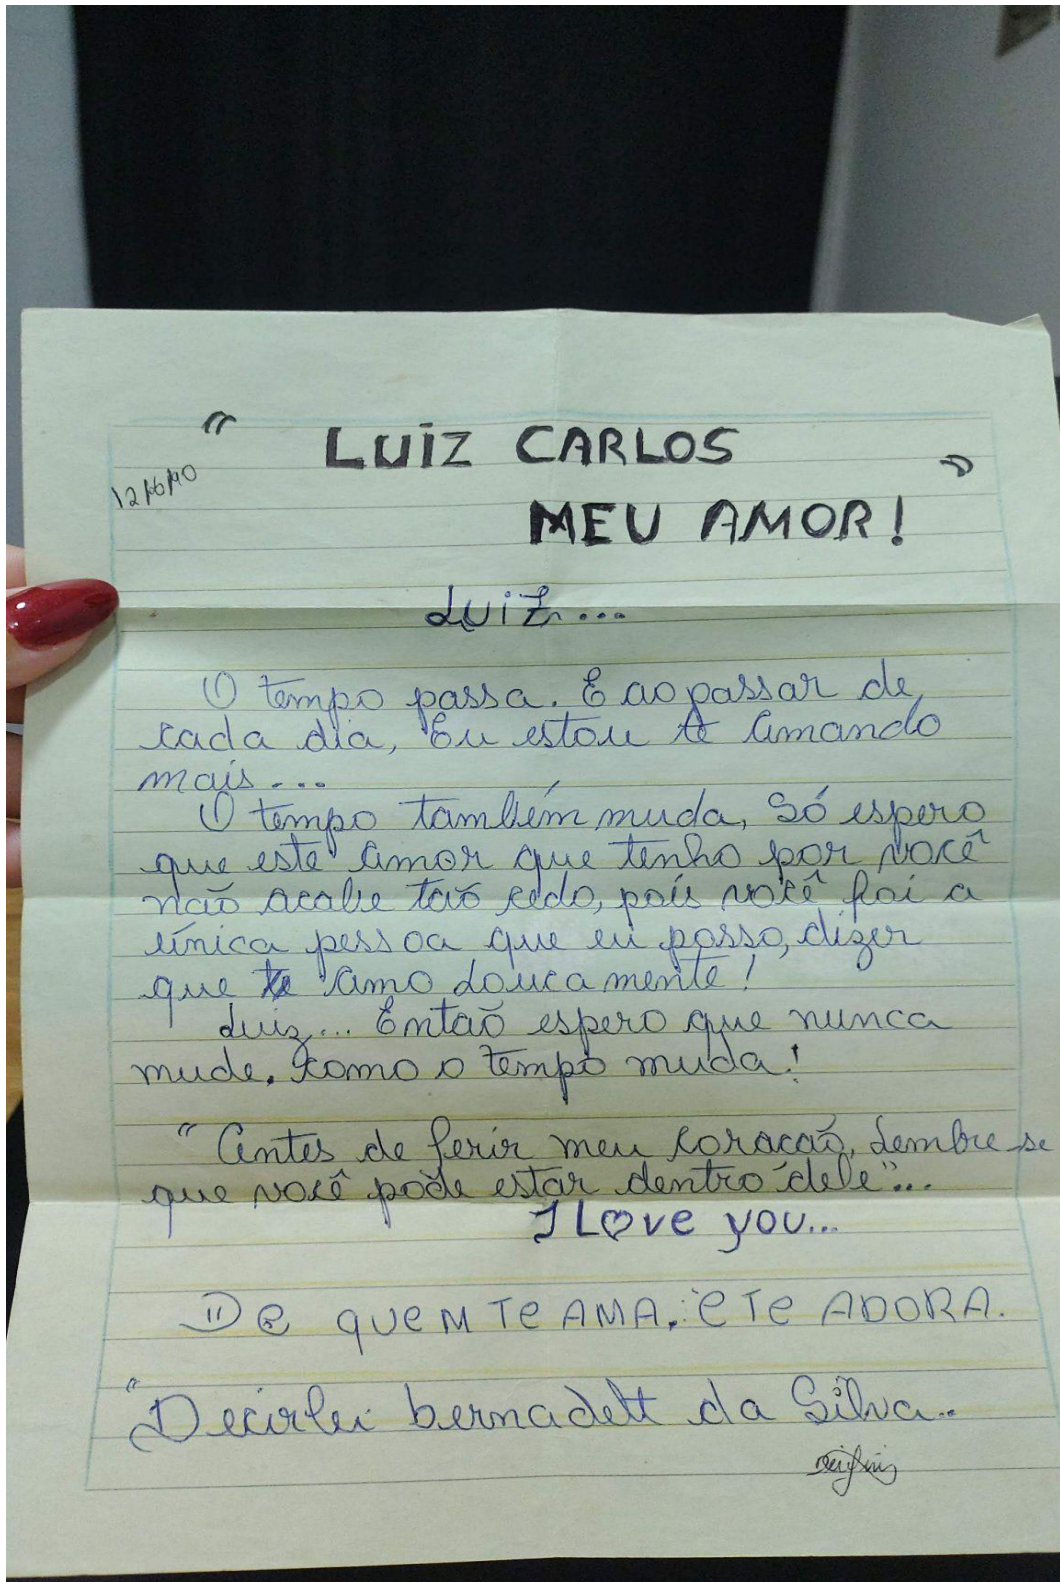 " LUIZ CARLOS "
12/6/90
MEU AMOR!
Luiz...
O tempo passa. E ao passar de
cada dia, Eu estou te amando
mais...
O tempo também muda, Só espero
que este amor que tenho por você
não acabe tão cedo, pois você foi a
única pessoa que eu posso, dizer
que te amo loucamente!
Luiz... Então espero que nunca
mude, como o tempo muda!
"Antes de ferir meu coracão, Lembre-se
que você pode estar dentro dele"...
I Love you...
"De quem Te AMA, e Te ADORA.
"Decirlei bernadett da Silva..